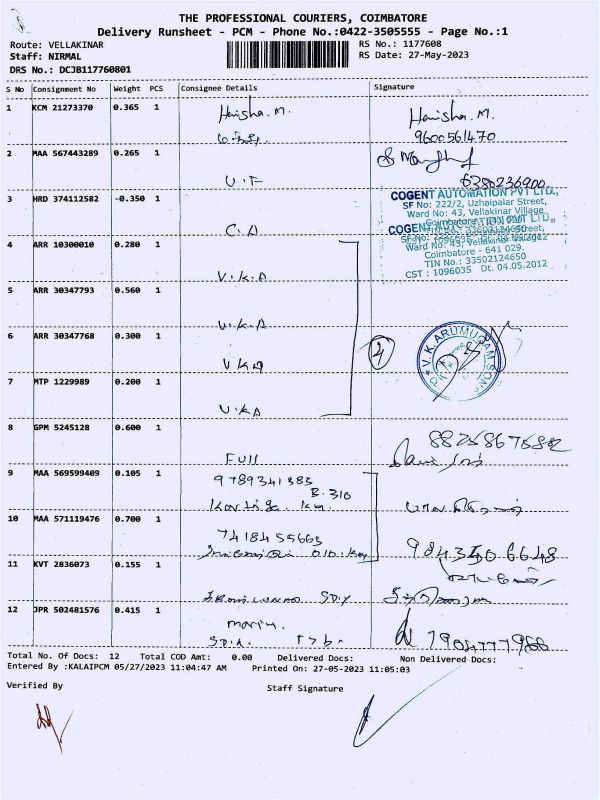 THE PROFESSIONAL COURIERS, COIMBATORE
Delivery Runsheet - PCM - Phone No.:0422-3505555 - Page No.:1
Route: VELLAKINAR RS No.: 1177608
Staff: NIRMAL RS Date: 27-May-2023
DRS No.: DCJB117760801
S No Consignment No Weight PCS Consignee Details Signature
1 KCM 21273370 0.365 1 Harisha.M. Harisha.M.
9600561470
2 MAA 567443289 0.265 1
U.F 6380236900
3 HRD 374112582 -0.350 1
C.A
COGENT AUTOMATION PVT LTD.,
SF No: 222/2, Uzhaipalar Street,
Ward No: 43, Vellakinar Village
Coimbatore - 641 029.
TIN No.: 33502124650
CST : 1096035 Dt. 04.05.2012
4 ARR 10300010 0.280 1
V.K.A
5 ARR 30347793 0.560 1
V.K.A
6 ARR 30347768 0.300 1
VKA
4
V.K. ARUMUGAM SONS
7 MTP 1229989 0.200 1
V.K.A
8 GPM 5245128 0.600 1
Full
9 MAA 569599409 0.105 1 9789341383
B.310
10 MAA 571119476 0.700 1 7418455663
9843506648
11 KVT 2836073 0.155 1
12 JPR 502481576 0.415 1
7904777966
Total No. Of Docs: 12 Total COD Amt: 0.00 Delivered Docs: Non Delivered Docs:
Entered By :KALAIPCM 05/27/2023 11:04:47 AM Printed On: 27-05-2023 11:05:03
Verified By Staff Signature